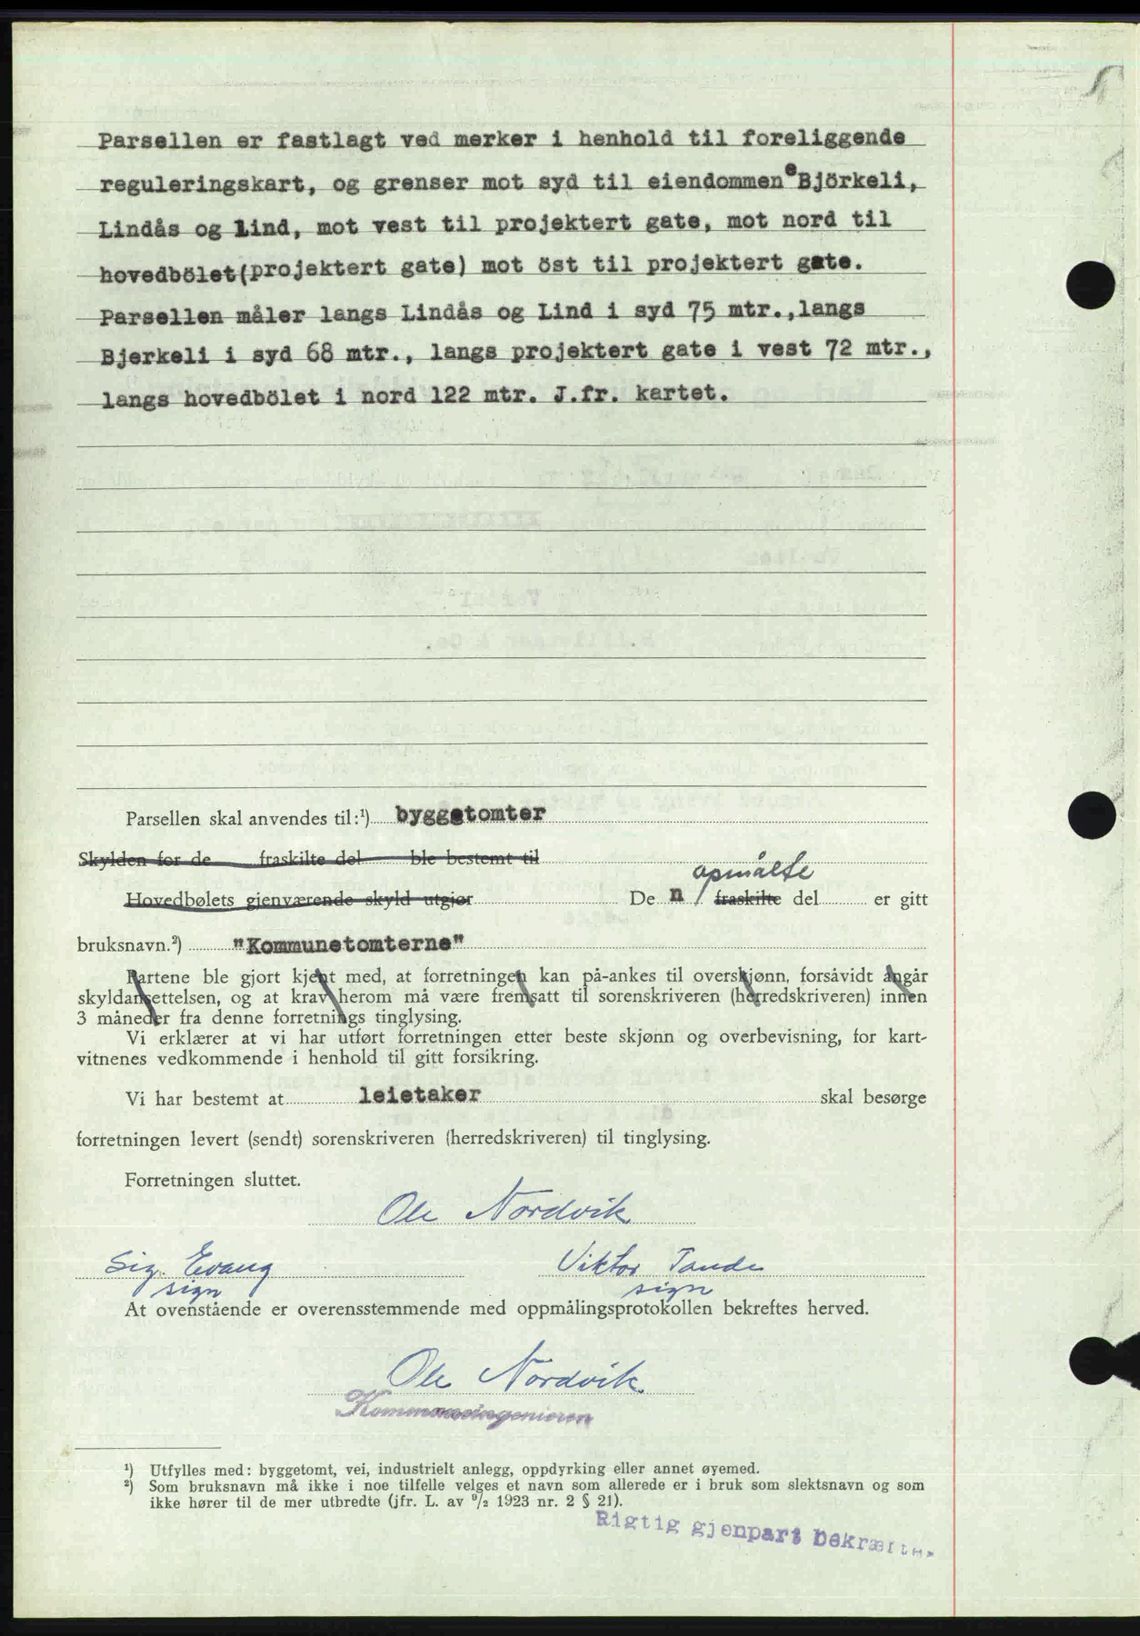 Parsellen er fastlagt ved merker i henhold til foreliggende
reguleringskart, og grenser mot syd til eiendommene Björkeli,
Lindås og Lind, mot vest til projektert gate, mot nord til
hovedbölet(projektert gate) mot öst til projektert gate.
Parsellen måler langs Lindås og Lind i syd 75 mtr., langs
Bjerkeli i syd 68 mtr., langs projektert gate i vest 72 mtr.,
langs hovedbölet i nord 122 mtr. J.fr. kartet.
Parsellen skal anvendes til:¹) byggetomter
Skylden for de fraskilte del ble bestemt til
opmålte
Hovedbølets gjenværende skyld utgjør De n fraskilte del er gitt
bruksnavn.²) "Kommunetomterne"
Partene ble gjort kjent med, at forretningen kan på-ankes til overskjønn, forsåvidt angår
skyldansettelsen, og at krav herom må være fremsatt til sorenskriveren (herredskriveren) innen
3 måneder fra denne forretnings tinglysing.
Vi erklærer at vi har utført forretningen etter beste skjønn og overbevisning, for kart-
vitnenes vedkommende i henhold til gitt forsikring.
Vi har bestemt at leietaker skal besørge
forretningen levert (sendt) sorenskriveren (herredskriveren) til tinglysing.
Forretningen sluttet.
Ole Nordvik
Sig. Evang Viktor Tande
sign sign
At ovenstående er overensstemmende med oppmålingsprotokollen bekreftes herved.
Ole Nordvik.
Kommuneingeniøren
¹) Utfylles med: byggetomt, vei, industrielt anlegg, oppdyrking eller annet øyemed.
²) Som bruksnavn må ikke i noe tilfelle velges et navn som allerede er i bruk som slektsnavn og som
ikke hører til de mer utbredte (jfr. L. av ⁹/₂ 1923 nr. 2 § 21).
Rigtig gjenpart bekræftes